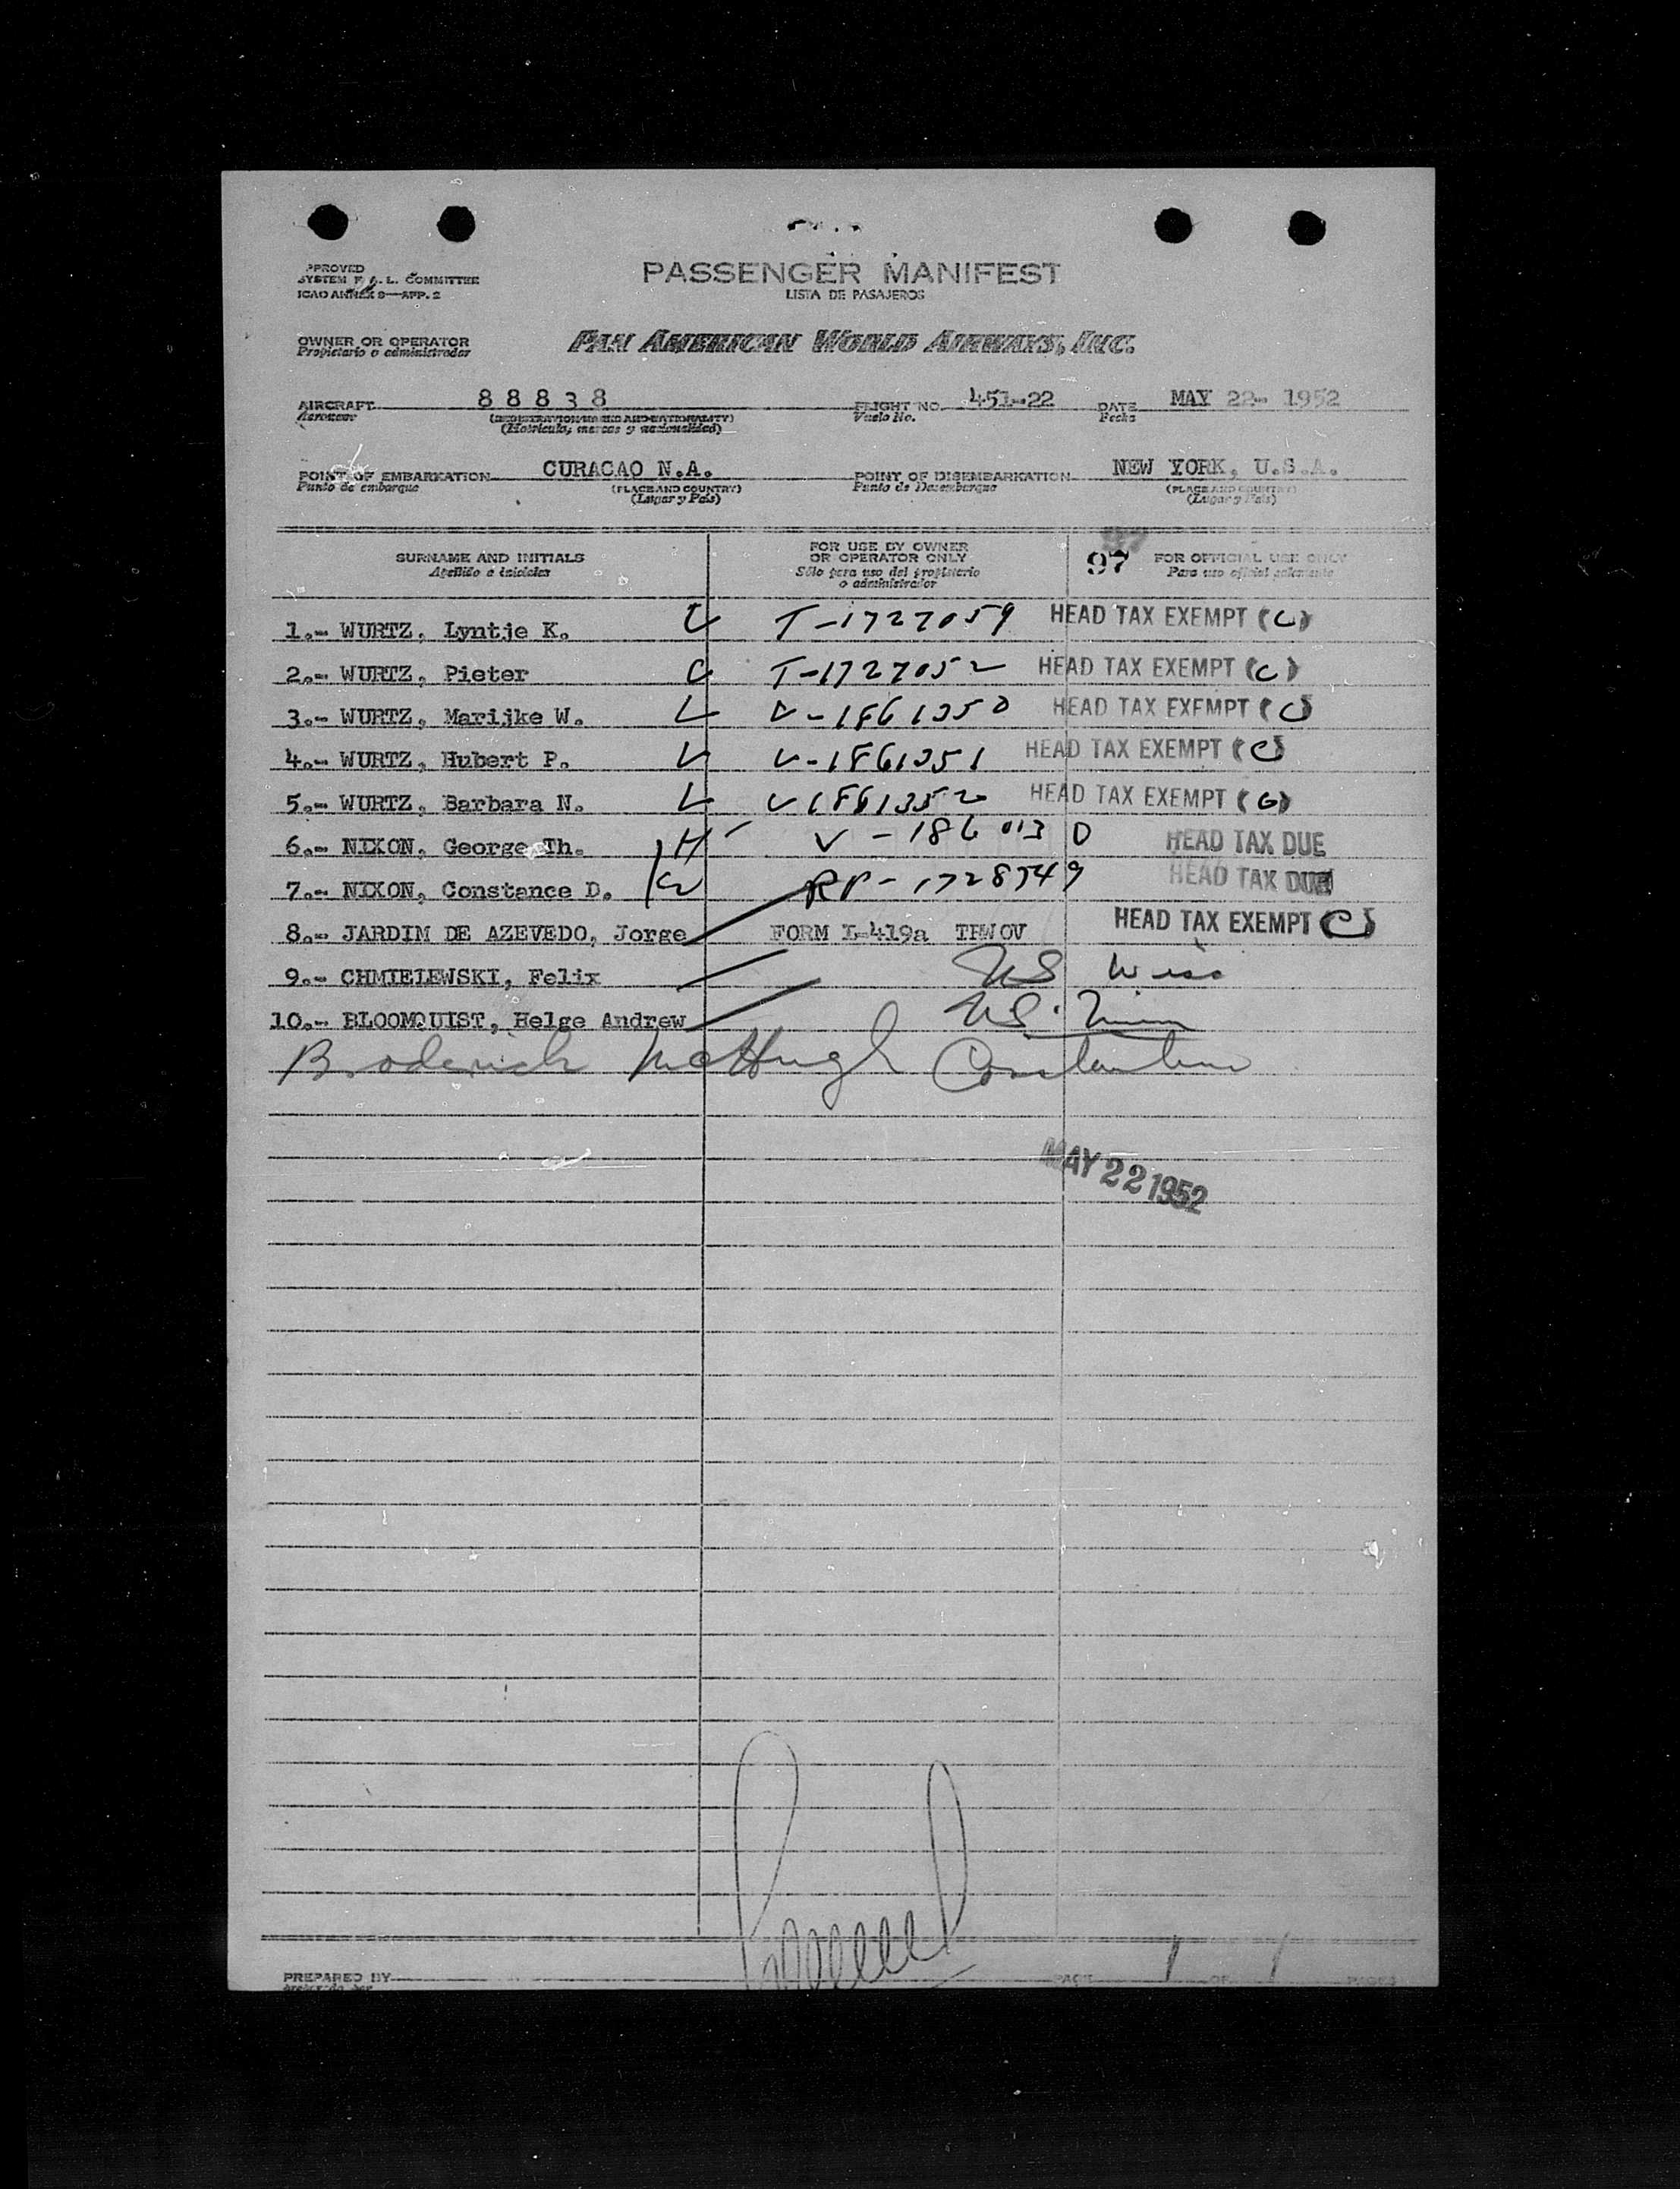 PASSENGER MANIFEST
LISTA DE PASAJEROS
PPROVED
SYSTEM F. A. L. COMMITTEE
ICAO ANNEX 9—APP. 2
OWNER OR OPERATOR
Propietario o administrador
PAN AMERICAN WORLD AIRWAYS, INC.
AIRCRAFT 88838 FLIGHT NO. 451-22 DATE MAY 22- 1952
Aeronave Vuelo No. Fecha
(Matricula, marcas y nacionalidad)
POINT OF EMBARKATION CURACAO N.A. POINT OF DISEMBARKATION NEW YORK, U.S.A.
Punto de embarque (PLACE AND COUNTRY) Punto de Desembarque (PLACE AND COUNTRY)
(Lugar y País) (Lugar y País)
SURNAME AND INITIALS
Apellido e iniciales
FOR USE BY OWNER
OR OPERATOR ONLY
Sólo para uso del propietario
o administrador
97 FOR OFFICIAL USE ONLY
Para uso oficial solamente
1.- WURTZ, Lyntje K. T-1727059 HEAD TAX EXEMPT (C)
2.- WURTZ, Pieter C T-1727052 HEAD TAX EXEMPT (C)
3.- WURTZ, Marijke W. V-1861350 HEAD TAX EXEMPT (C)
4.- WURTZ, Hubert P. V-1861351 HEAD TAX EXEMPT (C)
5.- WURTZ, Barbara N. V1861352 HEAD TAX EXEMPT
6.- NIXON, George Th. H V-1860130 HEAD TAX DUE
7.- NIXON, Constance D. W RP-1728749 HEAD TAX DUE
8.- JARDIM DE AZEVEDO, Jorge FORM I-419a TRWOV HEAD TAX EXEMPT C
9.- CHMIELEWSKI, Felix US Wisc
10.- BLOOMQUIST, Helge Andrew US. Minn
Broderick McHugh Constantine
MAY 22 1952
PREPARED BY PAGE 1 OF 1 PAGES